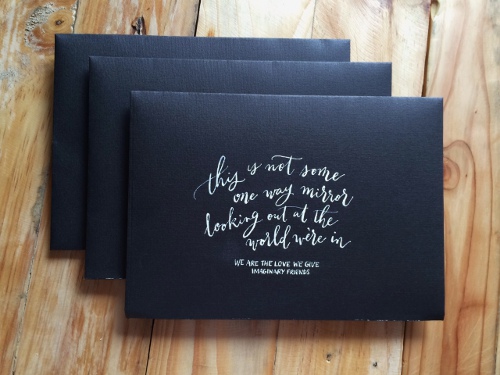 this is not some
one way mirror
looking out at the
world we're in
WE ARE THE LOVE WE GIVE
IMAGINARY FRIENDS